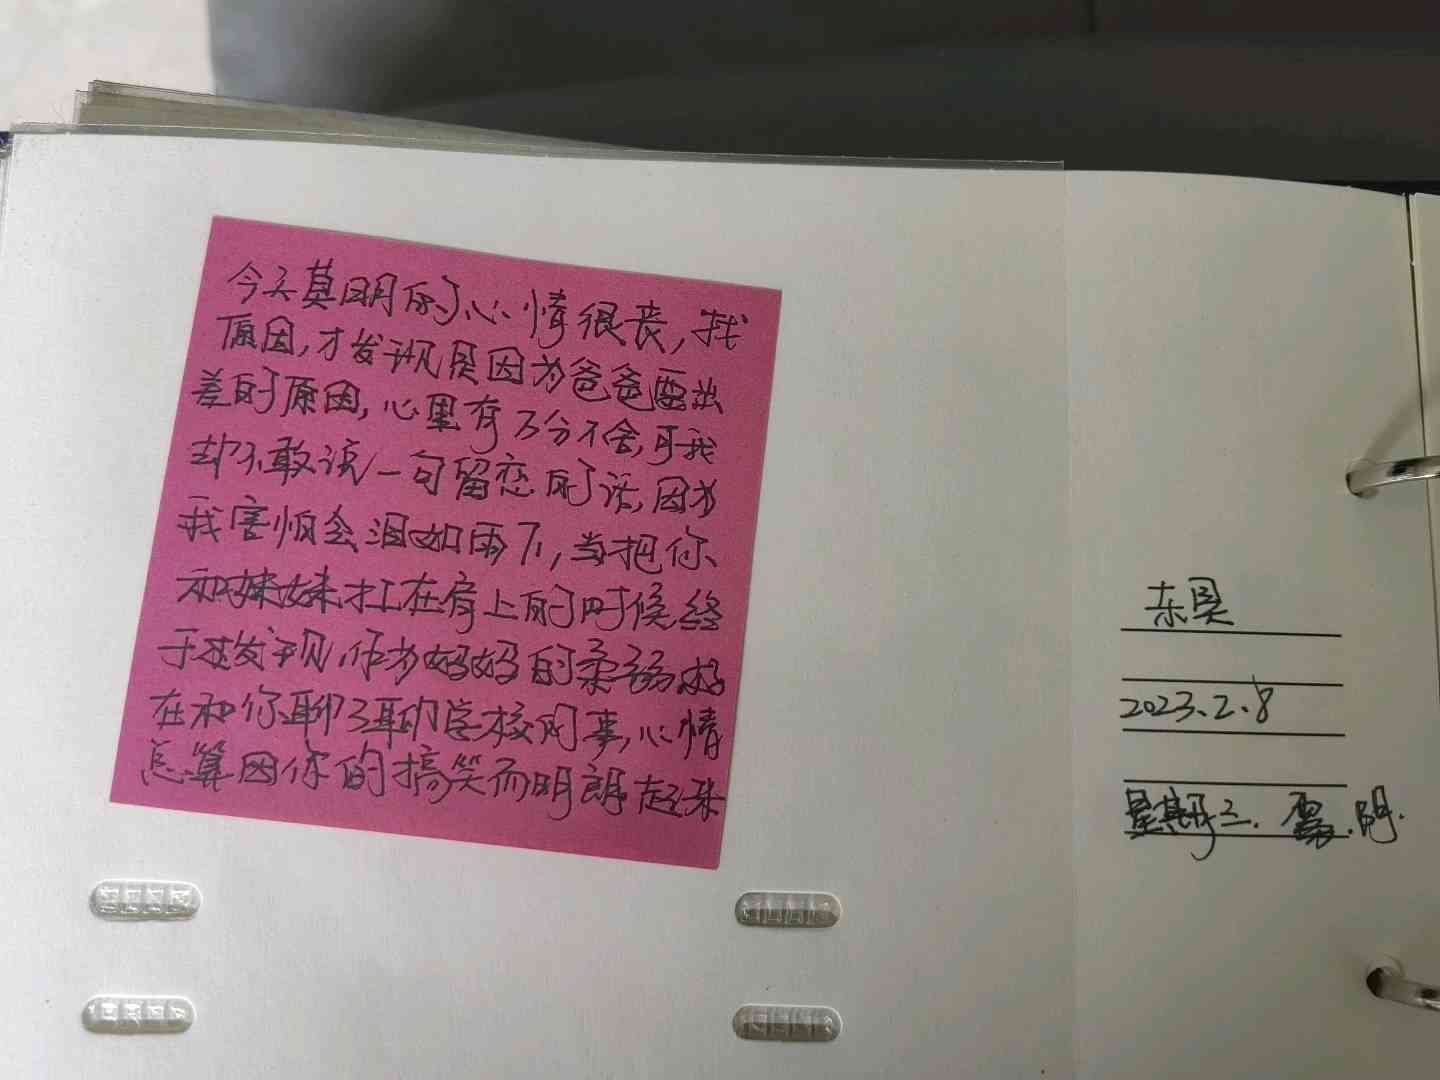 今天莫明的心情很丧,找
原因,才发现是因为爸爸要出
差的原因,心里有万分不舍,可我
却不敢说一句留恋的话,因为
我害怕会泪如雨下,当把你
和妹妹扛在肩上的时候终
于发现,作为妈妈的柔弱,好
在和你聊了聊学校的事,心情
总算因你的搞笑而明朗起来
2023.2.8
星期三. 阴.